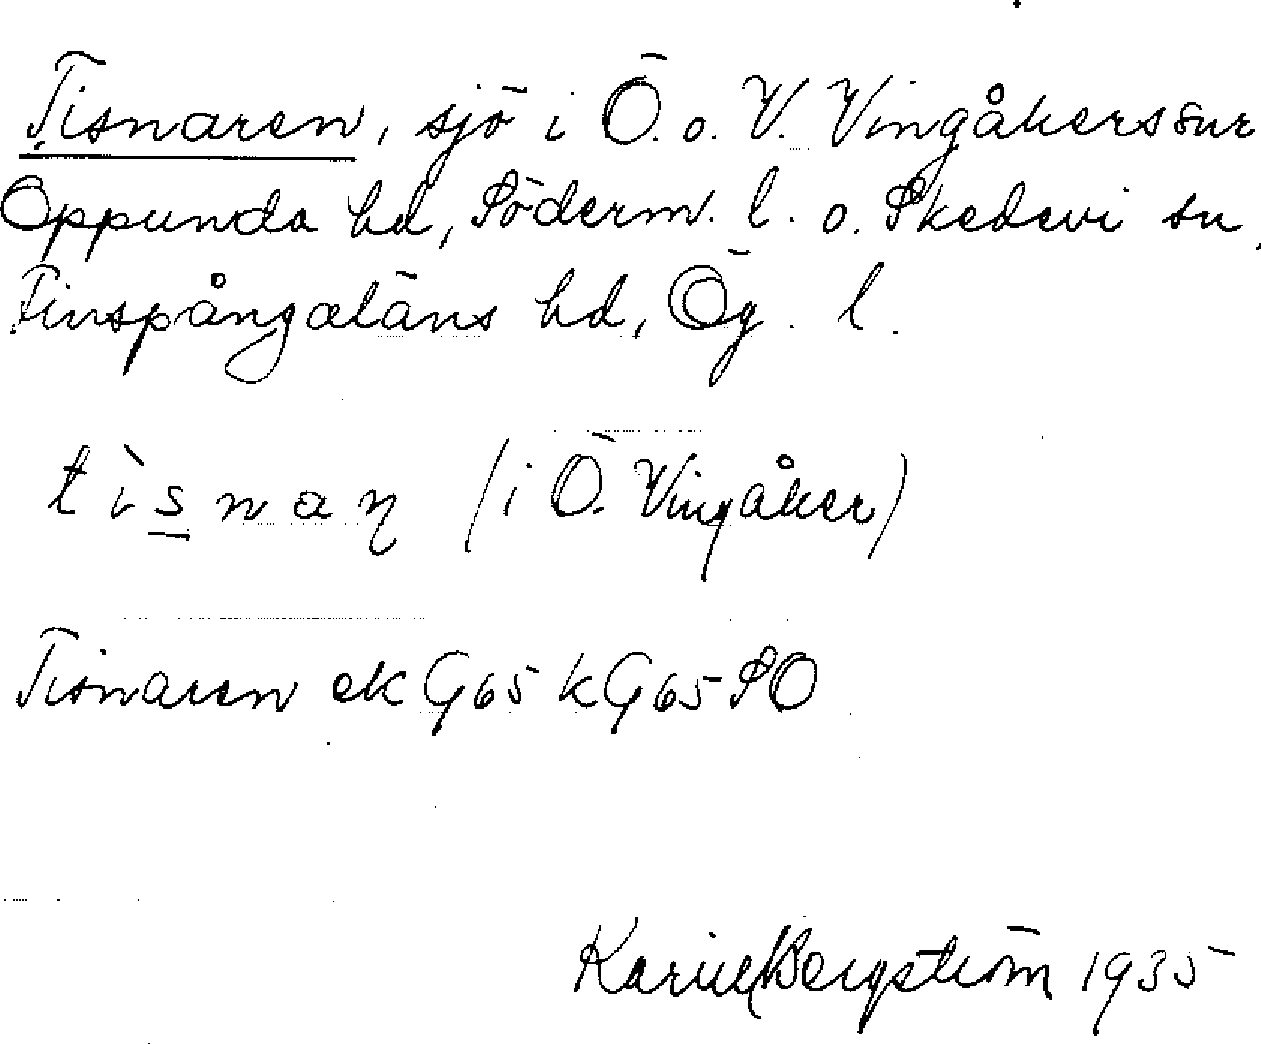 Tisnaren, sjö i Ö. o. V. Vingåkers snr
Oppunda hd, Söderm. l. o. Skedevi sn,
Finspångaläns hd, Ög. l.
tìs̲naŋ (i Ö. Vingåker)
Tisnaren ek G65 kG65 SO
Bergström 1935